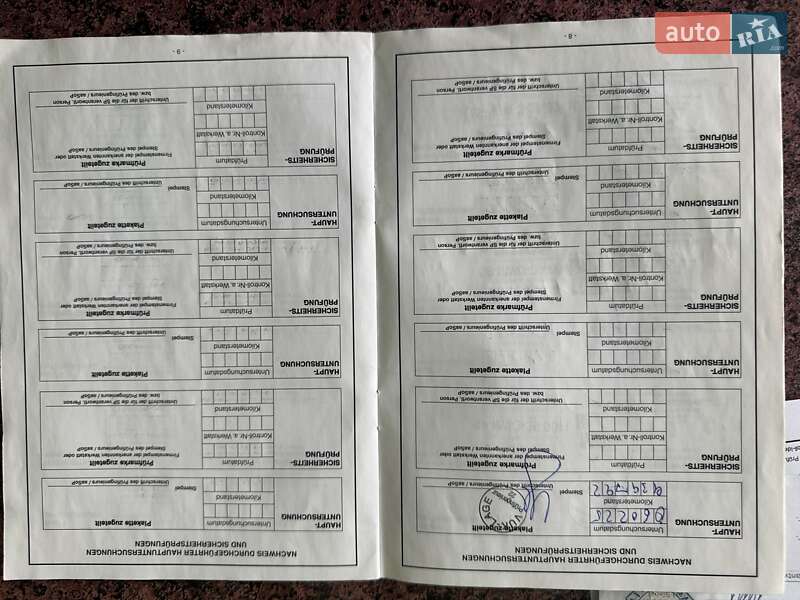 auto RIA.com
NACHWEIS DURCHGEFÜHRTER HAUPTUNTERSUCHUNGEN
UND SICHERHEITSPRÜFUNGEN
HAUPT-
UNTERSUCHUNG
Untersuchungsdatum
Kilometerstand
Plakette zugeteilt
Stempel
Unterschrift des Prüfingenieurs / aaSoP
SICHERHEITS-
PRÜFUNG
Prüfdatum
Kontroll-Nr. a. Werkstatt
Kilometerstand
Prüfmarke zugeteilt
Firmenstempel der anerkannten Werkstatt oder
Stempel des Prüfingenieurs / aaSoP
Unterschrift der für die SP verantwortl. Person
bzw. des Prüfingenieurs / aaSoP
HAUPT-
UNTERSUCHUNG
Untersuchungsdatum
Kilometerstand
Plakette zugeteilt
Stempel
Unterschrift des Prüfingenieurs / aaSoP
SICHERHEITS-
PRÜFUNG
Prüfdatum
Kontroll-Nr. a. Werkstatt
Kilometerstand
Prüfmarke zugeteilt
Firmenstempel der anerkannten Werkstatt oder
Stempel des Prüfingenieurs / aaSoP
Unterschrift der für die SP verantwortl. Person
bzw. des Prüfingenieurs / aaSoP
HAUPT-
UNTERSUCHUNG
Untersuchungsdatum
Kilometerstand
Plakette zugeteilt
Stempel
Unterschrift des Prüfingenieurs / aaSoP
SICHERHEITS-
PRÜFUNG
Prüfdatum
Kontroll-Nr. a. Werkstatt
Kilometerstand
Prüfmarke zugeteilt
Firmenstempel der anerkannten Werkstatt oder
Stempel des Prüfingenieurs / aaSoP
Unterschrift der für die SP verantwortl. Person
bzw. des Prüfingenieurs / aaSoP
- 8 -
NACHWEIS DURCHGEFÜHRTER HAUPTUNTERSUCHUNGEN
UND SICHERHEITSPRÜFUNGEN
HAUPT-
UNTERSUCHUNG
Untersuchungsdatum
Kilometerstand
Plakette zugeteilt
Stempel
Unterschrift des Prüfingenieurs / aaSoP
SICHERHEITS-
PRÜFUNG
Prüfdatum
Kontroll-Nr. a. Werkstatt
Kilometerstand
Prüfmarke zugeteilt
Firmenstempel der anerkannten Werkstatt oder
Stempel des Prüfingenieurs / aaSoP
Unterschrift der für die SP verantwortl. Person
bzw. des Prüfingenieurs / aaSoP
HAUPT-
UNTERSUCHUNG
Untersuchungsdatum
Kilometerstand
Plakette zugeteilt
Stempel
Unterschrift des Prüfingenieurs / aaSoP
SICHERHEITS-
PRÜFUNG
Prüfdatum
Kontroll-Nr. a. Werkstatt
Kilometerstand
Prüfmarke zugeteilt
Firmenstempel der anerkannten Werkstatt oder
Stempel des Prüfingenieurs / aaSoP
Unterschrift der für die SP verantwortl. Person
bzw. des Prüfingenieurs / aaSoP
HAUPT-
UNTERSUCHUNG
Untersuchungsdatum
Kilometerstand
Plakette zugeteilt
Stempel
Unterschrift des Prüfingenieurs / aaSoP
SICHERHEITS-
PRÜFUNG
Prüfdatum
Kontroll-Nr. a. Werkstatt
Kilometerstand
Prüfmarke zugeteilt
Firmenstempel der anerkannten Werkstatt oder
Stempel des Prüfingenieurs / aaSoP
Unterschrift der für die SP verantwortl. Person
bzw. des Prüfingenieurs / aaSoP
- 9 -